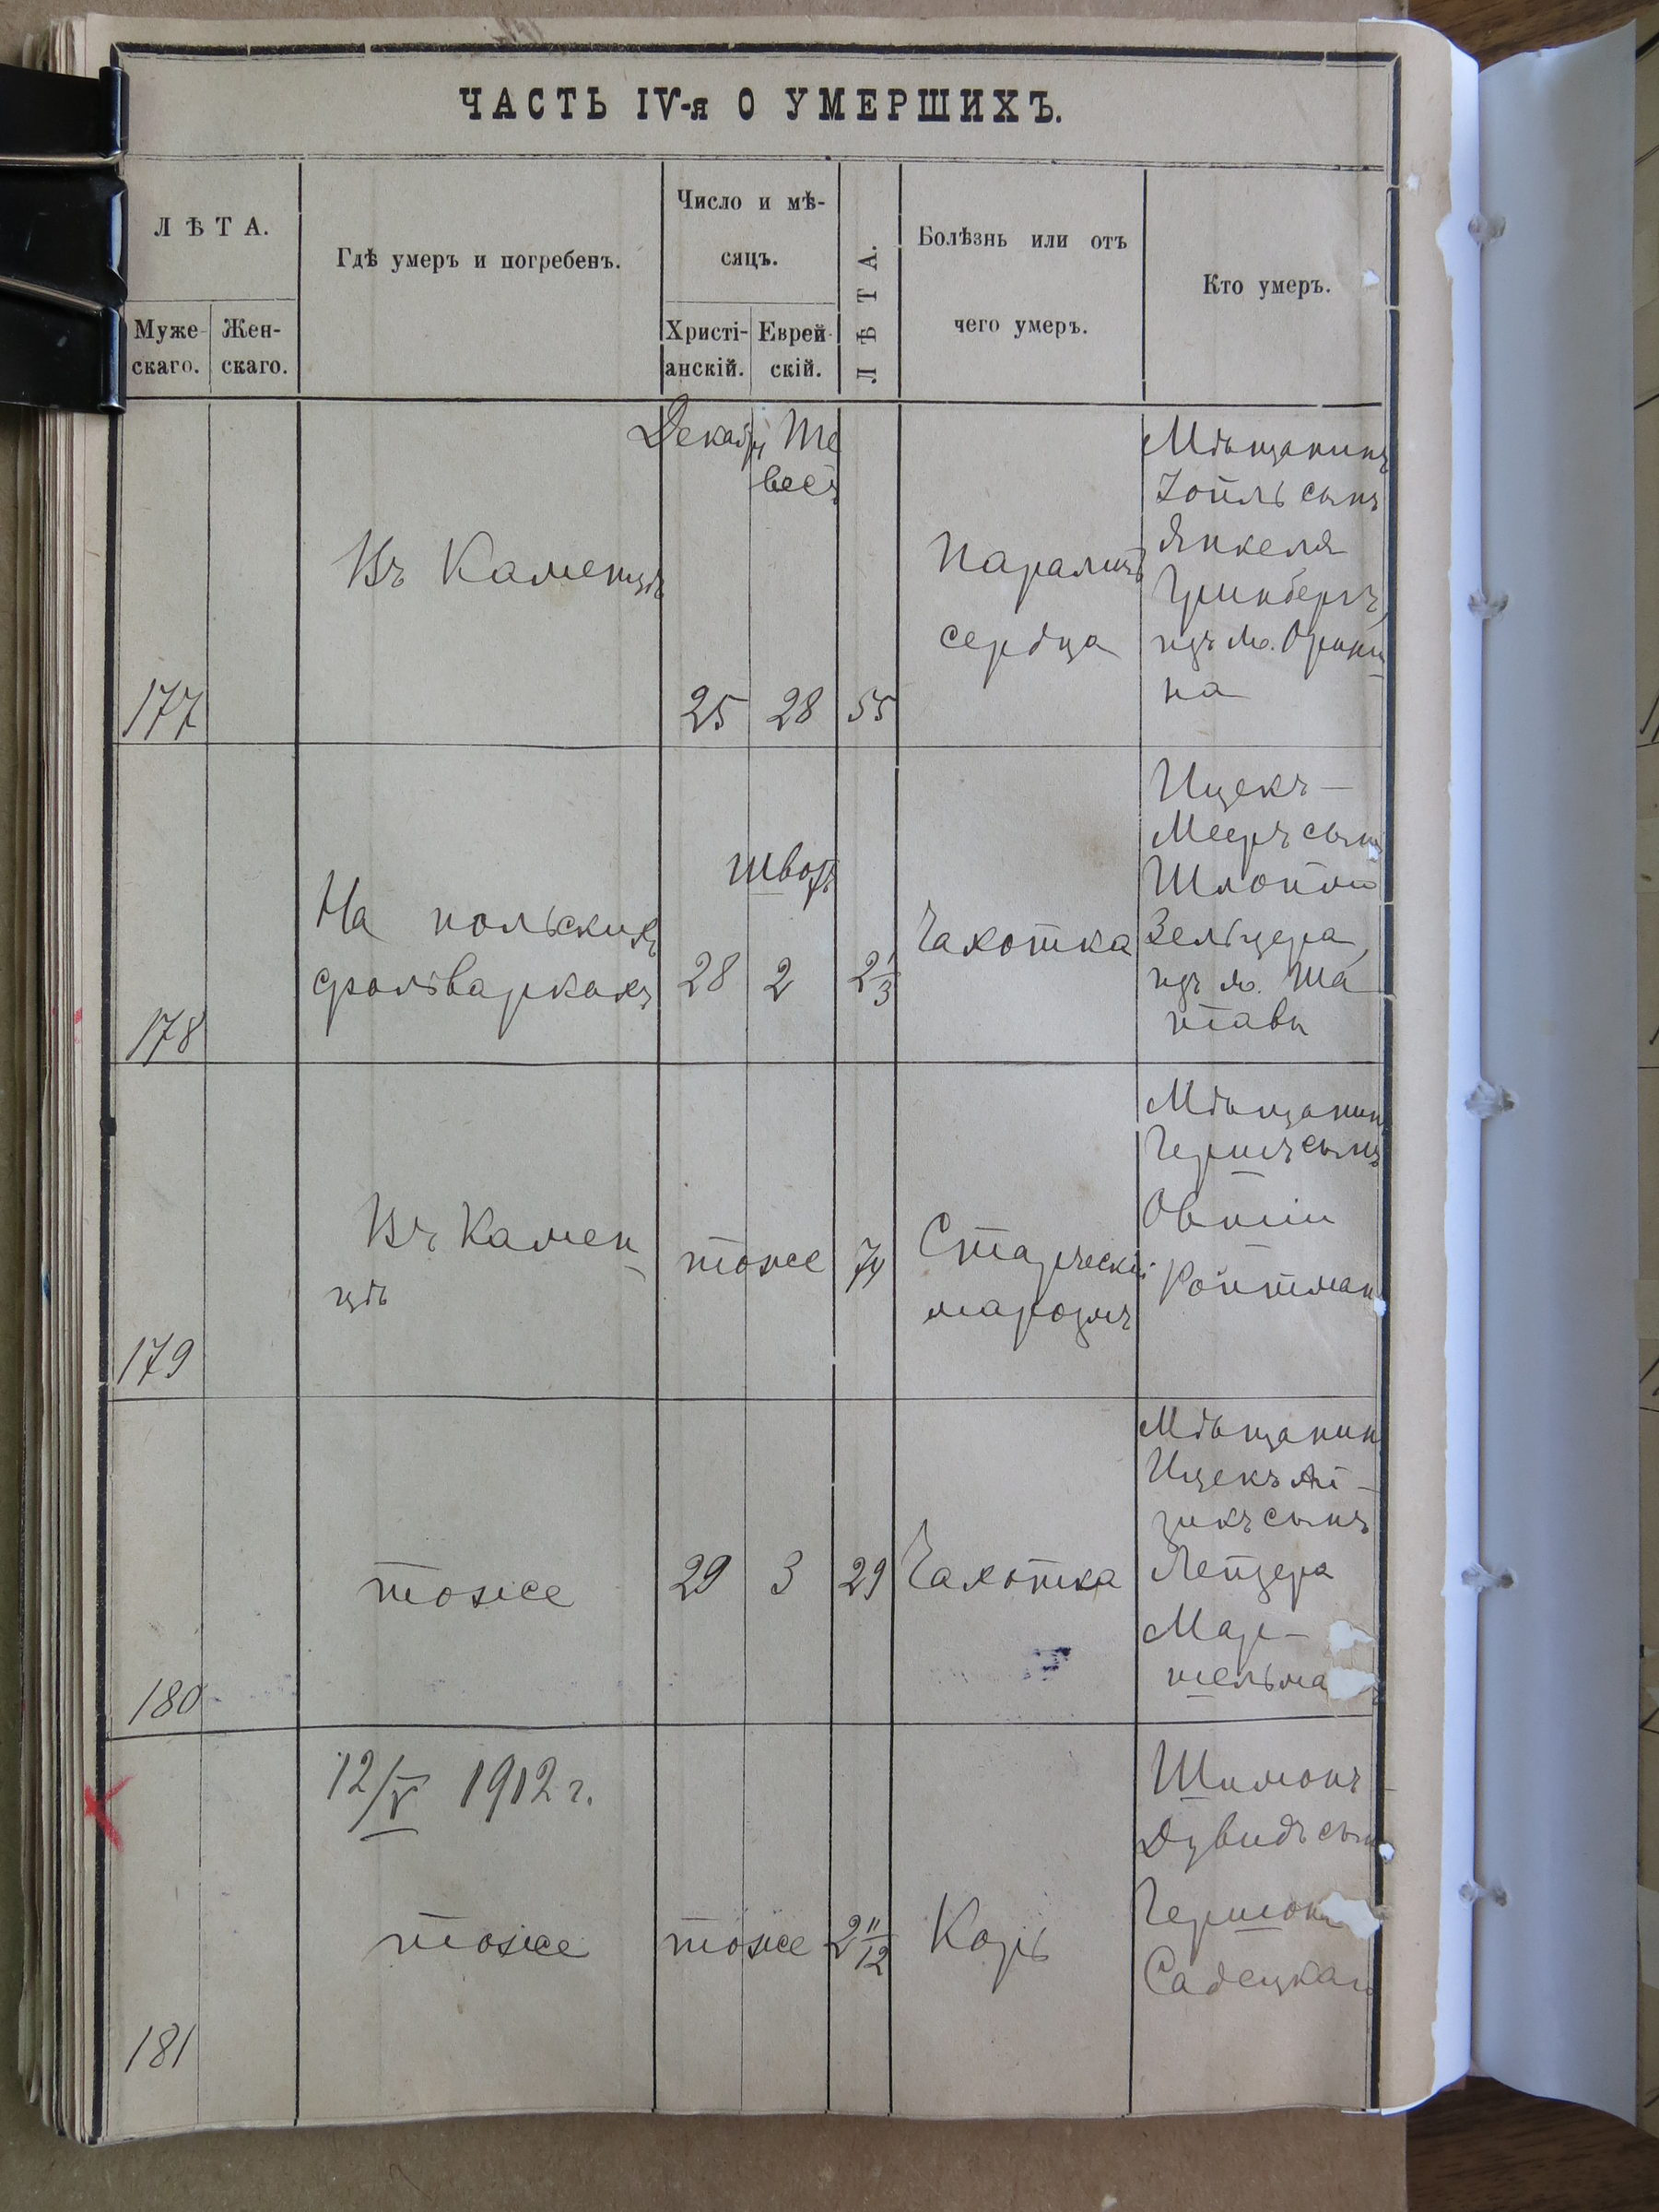 ЧАСТЬ IV-я О УМЕРШИХЪ.
ЛѢТА.
Муже-
скаго.
Жен-
скаго.
Гдѣ умеръ и погребенъ.
Число и мѣ-
сяцъ.
Христі-
анскій.
Еврей-
скій.
ЛѢТА.
Болѣзнь или отъ
чего умеръ.
Кто умеръ.
177
Въ Каменцѣ
Декабр
25
Те
весъ
28
55
Параличъ
сердца
Мѣщанинъ
Іойль сынъ
Янкеля
Гринбергъ,
изъ м. Орини
на
178
На польскихъ
фольваркахъ
28
Шватъ
2
2 1/3
Чахотка
Ицекъ-
Мееръ сынъ
Шлоймы
Зельцера,
изъ м. Ша
тавы
179
Въ Камен
цѣ
тоже
74
Старческій
маразмъ
Мѣщанин
Гершъ сынъ
Овшіи
Ройтман
180
тоже
29
3
29
Чахотка
Мѣщанин
Ицекъ Аі-
зикъ сынъ
Лейзера
Мар-
тельма
181
12/V 1912 г.
тоже
тоже
2 11/12
Корь
Шимонъ-
Дувидъ сын
Гершона
Садецкаго